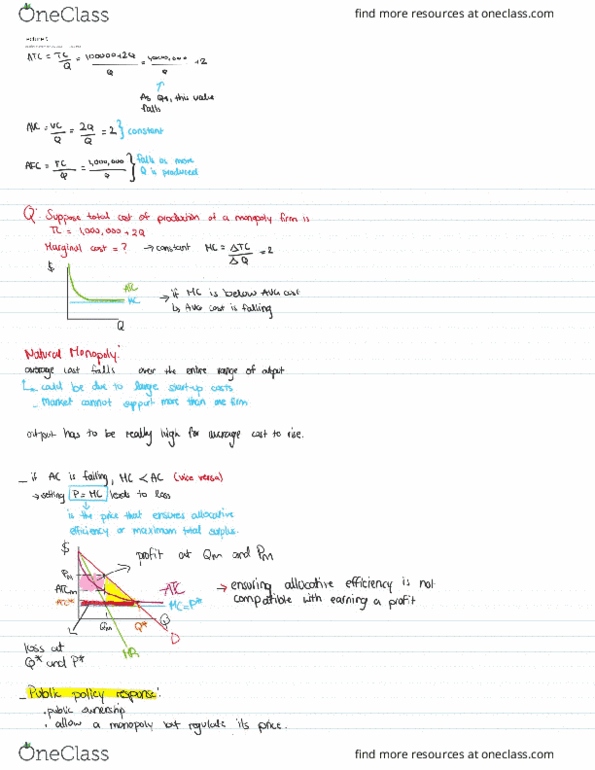 OneClass
find more resources at oneclass.com
ATC = TC/Q = 100000+2Q/Q = 1,000,000/Q +2
As Q↑, this value falls
AVC = VC/Q = 2Q/Q = 2 } constant
AFC = FC/Q = 1,000,000/Q } falls as more Q is produced
Q: Suppose total cost of production of a monopoly firm is
TC = 1,000,000 + 2Q
Marginal cost = ? → constant MC = ΔTC/ΔQ = 2
$
ATC
MC
Q
→ if MC is below AVG cost
↳ AVG cost is falling
Natural Monopoly:
average cost falls over the entire range of output
↳ could be due to large start-up costs
- Market cannot support more than one firm
output has to be really high for average cost to rise.
- if AC is falling, MC < AC (vice versa)
→ setting P = MC leads to loss
is the price that ensures allocative
efficiency or maximum total surplus.
$
profit at Qm and Pm
Pm
ATCm
ATC*
ATC
MC=P*
Qm
Q*
Q
D
MR
→ ensuring allocative efficiency is not
compatible with earning a profit
loss at
Q* and P*
- Public policy response:
· public ownership
· allow a monopoly but regulate its price.
OneClass
find more resources at oneclass.com